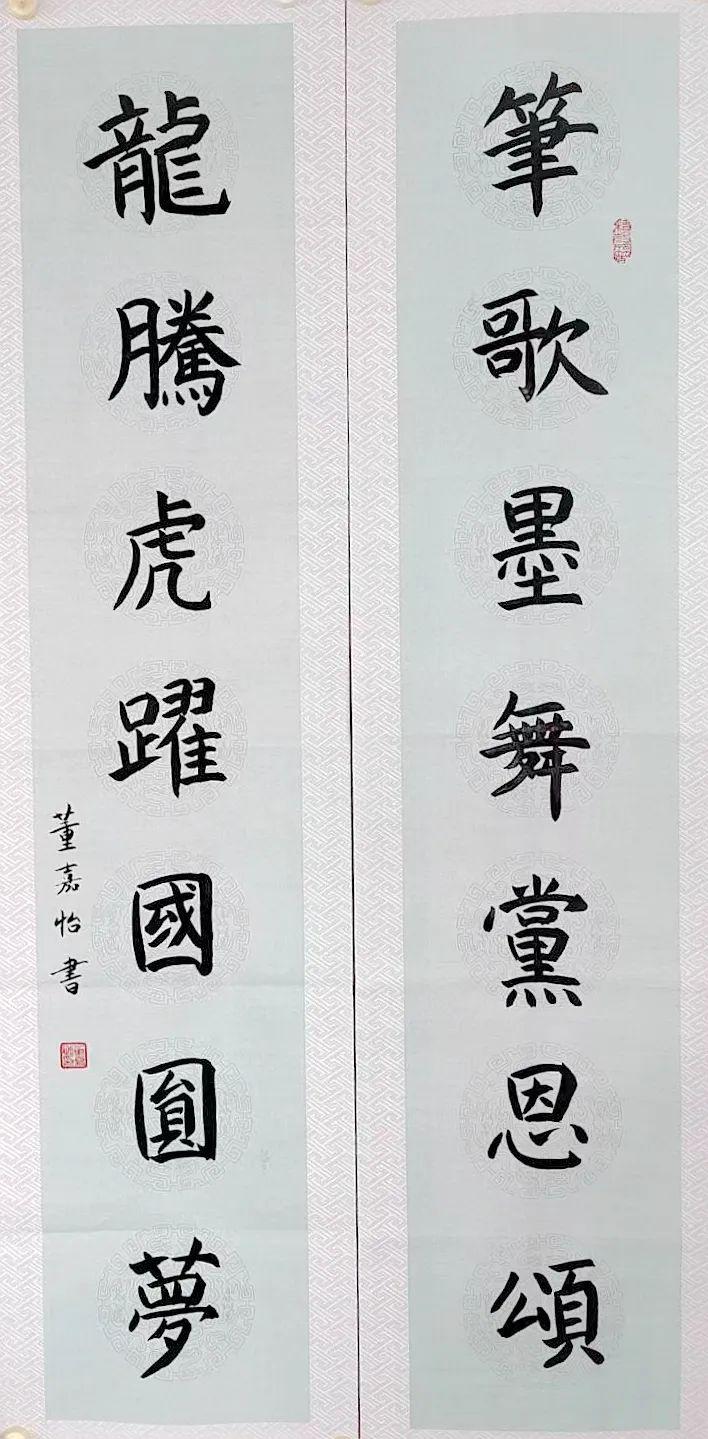 筆歌墨舞黨恩頌
龍騰虎躍國圓夢
董嘉怡書